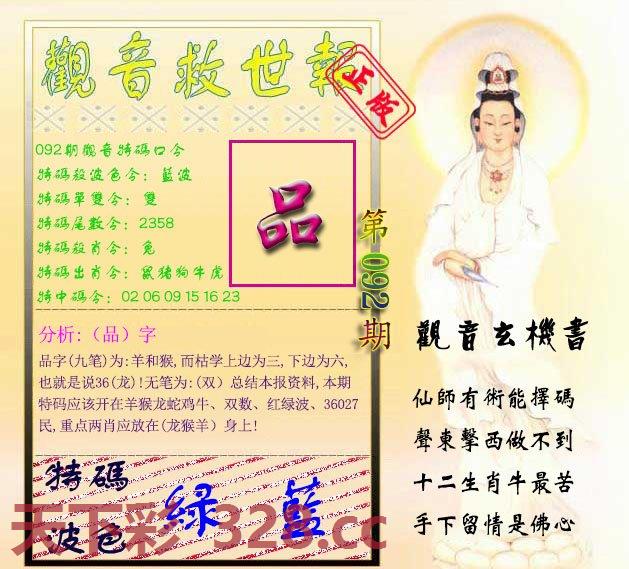 觀音救世報
正版
092期觀音特碼口令
特碼殺波色令：藍波
特碼單雙令：雙
特碼尾數令：2358
特碼殺肖令：兔
特碼出肖令：鼠豬狗牛虎
特中碼令：02 06 09 15 16 23
品
第092期
分析:（品）字
品字(九笔)为:羊和猴,而枯学上边为三,下边为六,
也就是说36(龙)!无笔为:(双）总结本报资料,本期
特码应该开在羊猴龙蛇鸡牛、双数、红绿波、36027
民,重点两肖应放在(龙猴羊）身上!
特碼
波色
綠 藍
天下彩 328.cc
觀音玄機書
仙師有術能擇碼
聲東擊西做不到
十二生肖牛最苦
手下留情是佛心